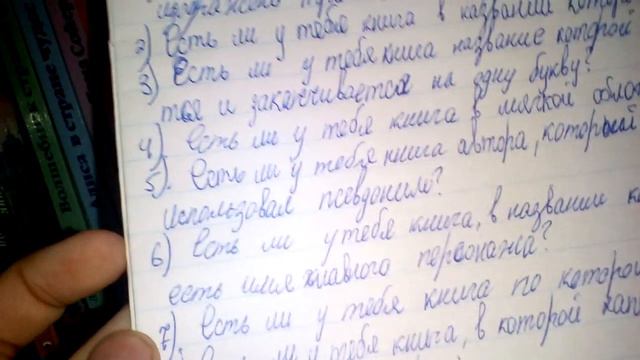 2) Есть ли у тебя книга в названии
3) Есть ли у тебя книга название которой
тся и заканчивается на одну букву?
4) Есть ли у тебя книга в мягкой
5) Есть ли у тебя книга автора, который
использовал псевдоним?
6) Есть ли у тебя книга, в названии
есть имя главного персонажа?
7) Есть ли у тебя книга по которой
ли у тебя книга, в которой
Алиса в стране